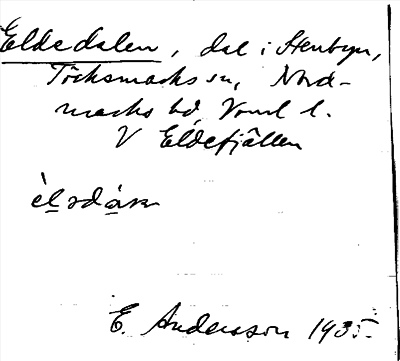 Eldedalen, dal i Stenbyn,
Töcksmarks sn, Nord-
marks hd, Vrml l.
V Eldefjällen
E. Andersson 1935.